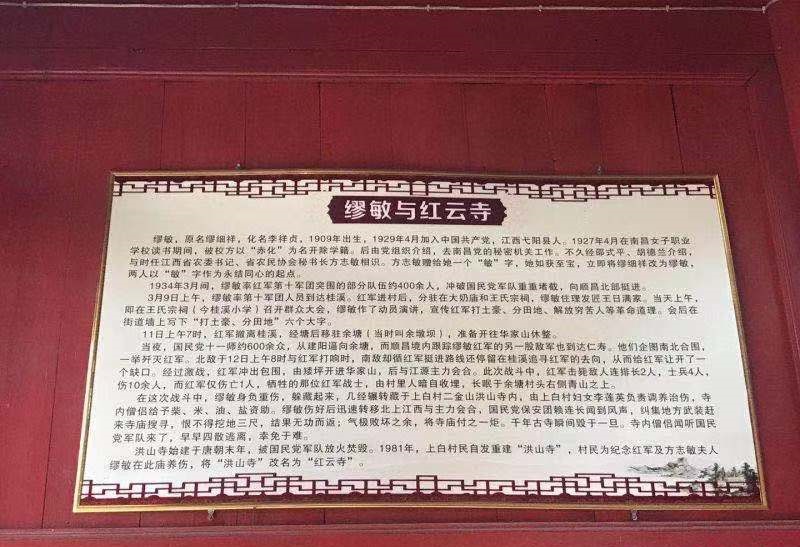 缪敏与红云寺
缪敏，原名缪细祥，化名李祥贞，1909年出生，1929年4月加入中国共产党，江西弋阳县人。1927年4月在南昌女子职业
学校读书期间，被校方以“赤化”为名开除学籍。后由党组织介绍，去南昌党的秘密机关工作。不久经邵式平、胡德兰介绍，
与时任江西省农委书记、省农民协会秘书长方志敏相识。方志敏赠给她一个“敏”字，她如获至宝，立即将缪细祥改为缪敏，
两人以“敏”字作为永结同心的起点。
1934年3月间，缪敏率红军第十军团突围的部分队伍约400余人，冲破国民党军队重重堵截，向顺昌北部挺进。
3月9日上午，缪敏率第十军团人员到达桂溪。红军进村后，分驻在大奶庙和王氏宗祠，缪敏住理发匠王日满家。当天上午，
即在王氏宗祠（今桂溪小学）召开群众大会，缪敏作了动员演讲，宣传红军打土豪、分田地、解放穷苦人等革命道理。会后在
街道墙上写下“打土豪、分田地”六个大字。
11日上午7时，红军撤离桂溪，经塘后移驻余塘（当时叫余墩坝），准备开往华家山休整。
当夜，国民党十一师约600余众，从建阳逼向余塘，而顺昌境内跟踪缪敏红军的另一股敌军也到达仁寿。他们企图南北合围，
一举歼灭红军。北敌于12日上午8时与红军打响时，南敌却循红军挺进路线还停留在桂溪追寻红军的去向，从而给红军让开了一
个缺口。经过激战，红军冲出包围，由矮坪开进华家山，后与江源主力会合。此次战斗中，红军击毙敌人连排长2人，士兵4人，
伤10余人，而红军仅伤亡1人，牺牲的那位红军战士，由村里人暗自收埋，长眠于余塘村头右侧青山之上。
在这次战斗中，缪敏身负重伤，躲藏起来，几经辗转藏于上白村二金山洪山寺内，由上白村妇女李莲英负责调养治伤，寺
内僧侣给予柴、米、油、盐资助。缪敏伤好后迅速转移北上江西与主力会合，国民党保安团赖连长闻到风声，纠集地方武装赶
来寺庙搜寻，恨不得挖地三尺，结果无功而返；气极败坏之余，将寺庙付之一炬。千年古寺瞬间毁于一旦。寺内僧侣闻听国民
党军队来了，早早四散逃离，幸免于难。
洪山寺始建于唐朝末年，被国民党军队放火焚毁。1981年，上白村民自发重建“洪山寺”，村民为纪念红军及方志敏夫人
缪敏在此庙养伤，将“洪山寺”改名为“红云寺”。